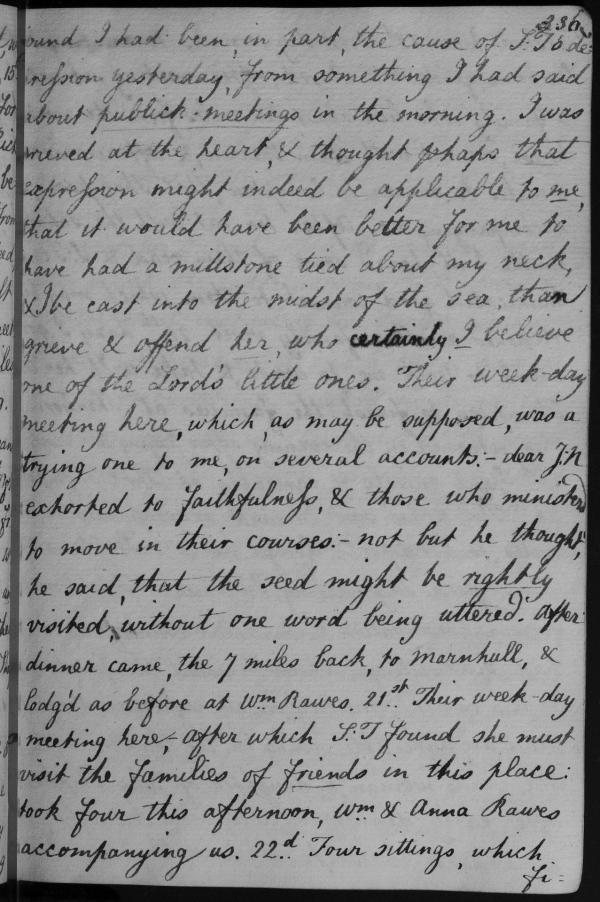 236
found I had been, in part, the cause of S:T's de=
pression yesterday, from something I had said
about publick meetings in the morning. I was
grieved at the heart, & thought phaps that
expression might indeed be applicable to me,
that it would have been better for me to
have had a millstone tied about my neck,
& I be cast into the midst of the sea, than
grieve & offend her, who certainly I believe
one of the Lord's little ones. Their week-day
meeting here, which, as may be supposed, was a
trying one to me, on several accounts:- dear J:N
exhorted to faithfulness, & those who minister'd
to move in their courses:- not but he thought,
he said, that the seed might be rightly
visited, without one word being utter'd. After
dinner came, the 7 miles back, to Marnhull, &
lodg'd as before at Wm Rawes. 21st. Their week-day
meeting here, after which S:T found she must
visit the families of friends in this place:
took four this afternoon, Wm & Anna Rawes
accompanying us. 22d. Four sittings, which
fi=